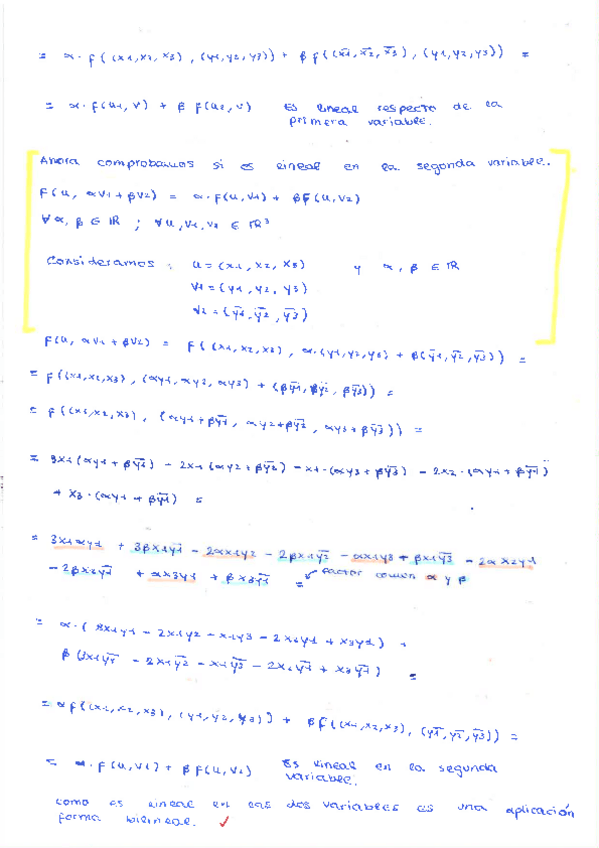 = α·f((x1,x2,x3), (y1,y2,y3)) + β f((x̄1,x̄2,x̄3), (y1,y2,y3)) =
= α·f(u1,v) + β f(u2,v) Es lineal respecto de la
primera variable.
Ahora comprobamos si es lineal en la segunda variable.
f(u, αv1+βv2) = α·f(u,v1) + βf(u,v2)
∀α,β ∈ IR ; ∀u,v1,v2 ∈ IR³
Consideramos: u=(x1,x2,x3) y α,β ∈ IR
v1=(y1,y2,y3)
v2=(ȳ1,ȳ2,ȳ3)
f(u, αv1+βv2) = f((x1,x2,x3), α·(y1,y2,y3) + β(ȳ1,ȳ2,ȳ3)) =
= f((x1,x2,x3), (αy1,αy2,αy3) + (βȳ1,βȳ2,βȳ3)) =
= f((x1,x2,x3), (αy1+βȳ1, αy2+βȳ2, αy3+βȳ3)) =
= 3x1(αy1+βȳ1) - 2x1(αy2+βȳ2) - x1·(αy3+βȳ3) - 2x2·(αy1+βȳ1)
+ x3·(αy1+βȳ1) =
= 3x1αy1 + 3βx1ȳ1 - 2αx1y2 - 2βx1ȳ2 - αx1y3 + βx1ȳ3 - 2αx2y1
- 2βx2ȳ1 + αx3y1 + βx3ȳ1 = factor común α y β
= α·(3x1y1 - 2x1y2 - x1y3 - 2x2y1 + x3y1) +
β(3x1ȳ1 - 2x1ȳ2 - x1ȳ3 - 2x2ȳ1 + x3ȳ1) =
= αf((x1,x2,x3), (y1,y2,y3)) + βf((x1,x2,x3), (ȳ1,ȳ2,ȳ3)) =
= α·f(u,v1) + βf(u,v2) Es lineal en la segunda
variable.
como es lineal en las dos variables es una aplicación
forma bilineal. ✓